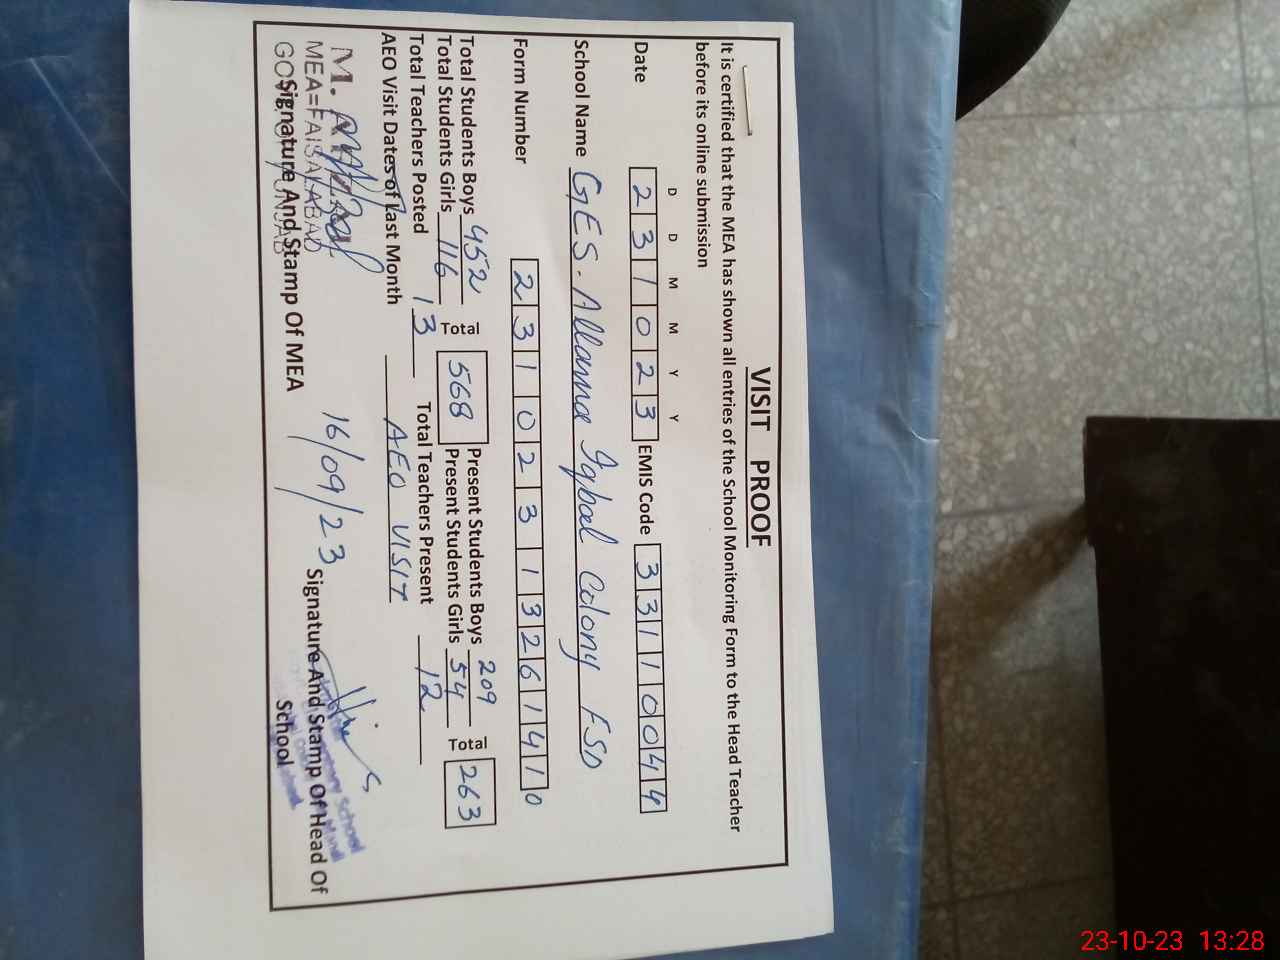 VISIT PROOF
It is certified that the MEA has shown all entries of the School Monitoring Form to the Head Teacher
before its online submission
D D M M Y Y
Date 2 3 1 0 2 3 EMIS Code 3 3 1 1 0 0 4 4
School Name GES. Allama Iqbal Colony FSD
Form Number 2 3 1 0 2 3 1 3 2 6 1 4 1 0
Total Students Boys 452 Total 568 Present Students Boys 209 Total 263
Total Students Girls 116 Present Students Girls 54
Total Teachers Posted 13 Total Teachers Present 12
AEO Visit Dates of Last Month AEO VISIT
16/09/23
M.
MEA=FAISALABAD
Signature And Stamp Of MEA
Signature And Stamp Of Head Of
School
23-10-23 13:28